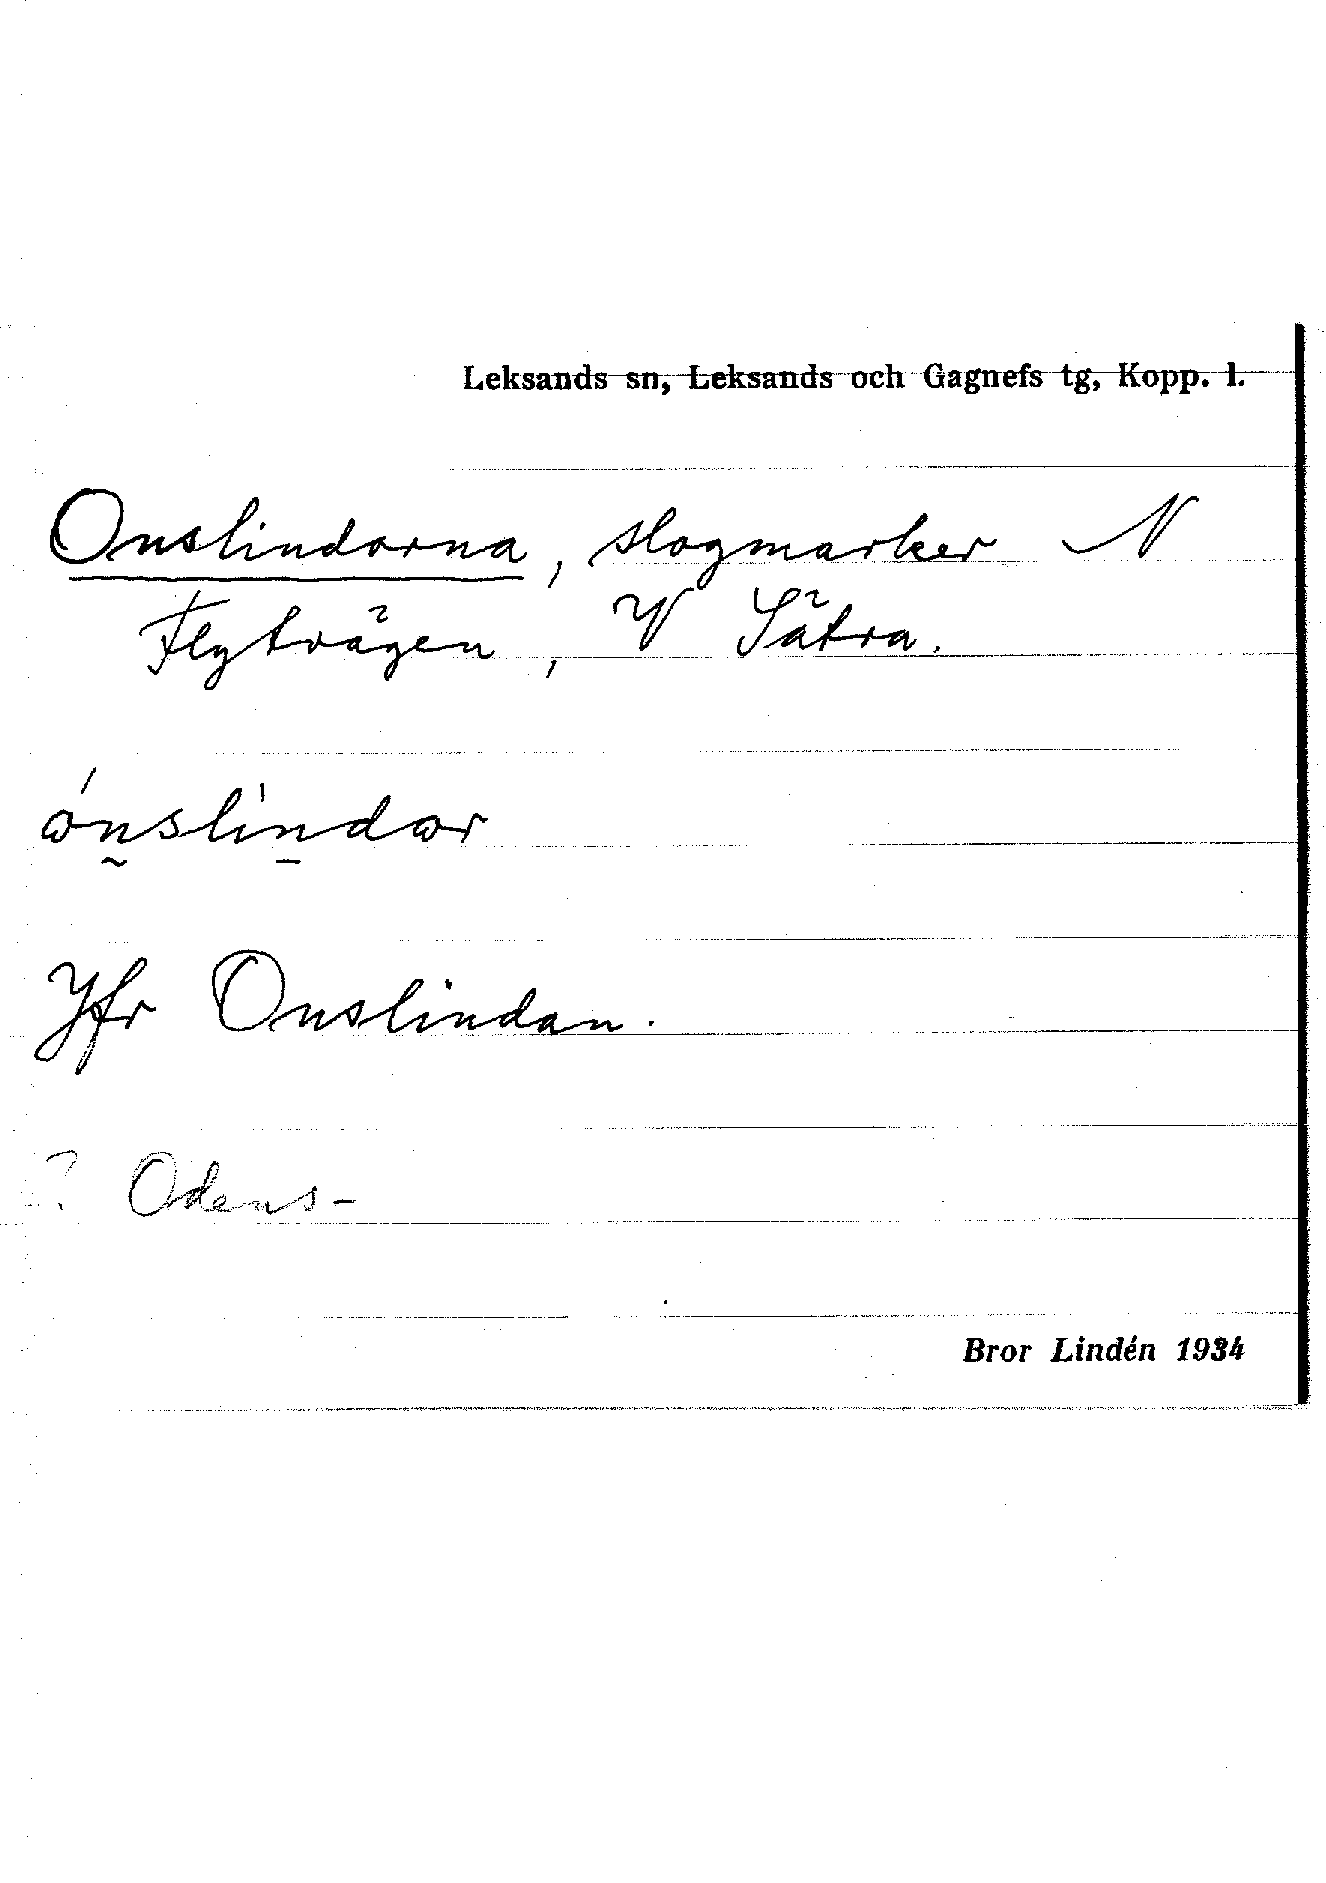 Leksands sn, Leksands och Gagnefs tg, Kopp. l.
Onslindorna, slogmarker N
Flytvägen, V Sätra.
ònslìndαr
Jfr Onslindan.
? Odens-
Bror Lindén 1934